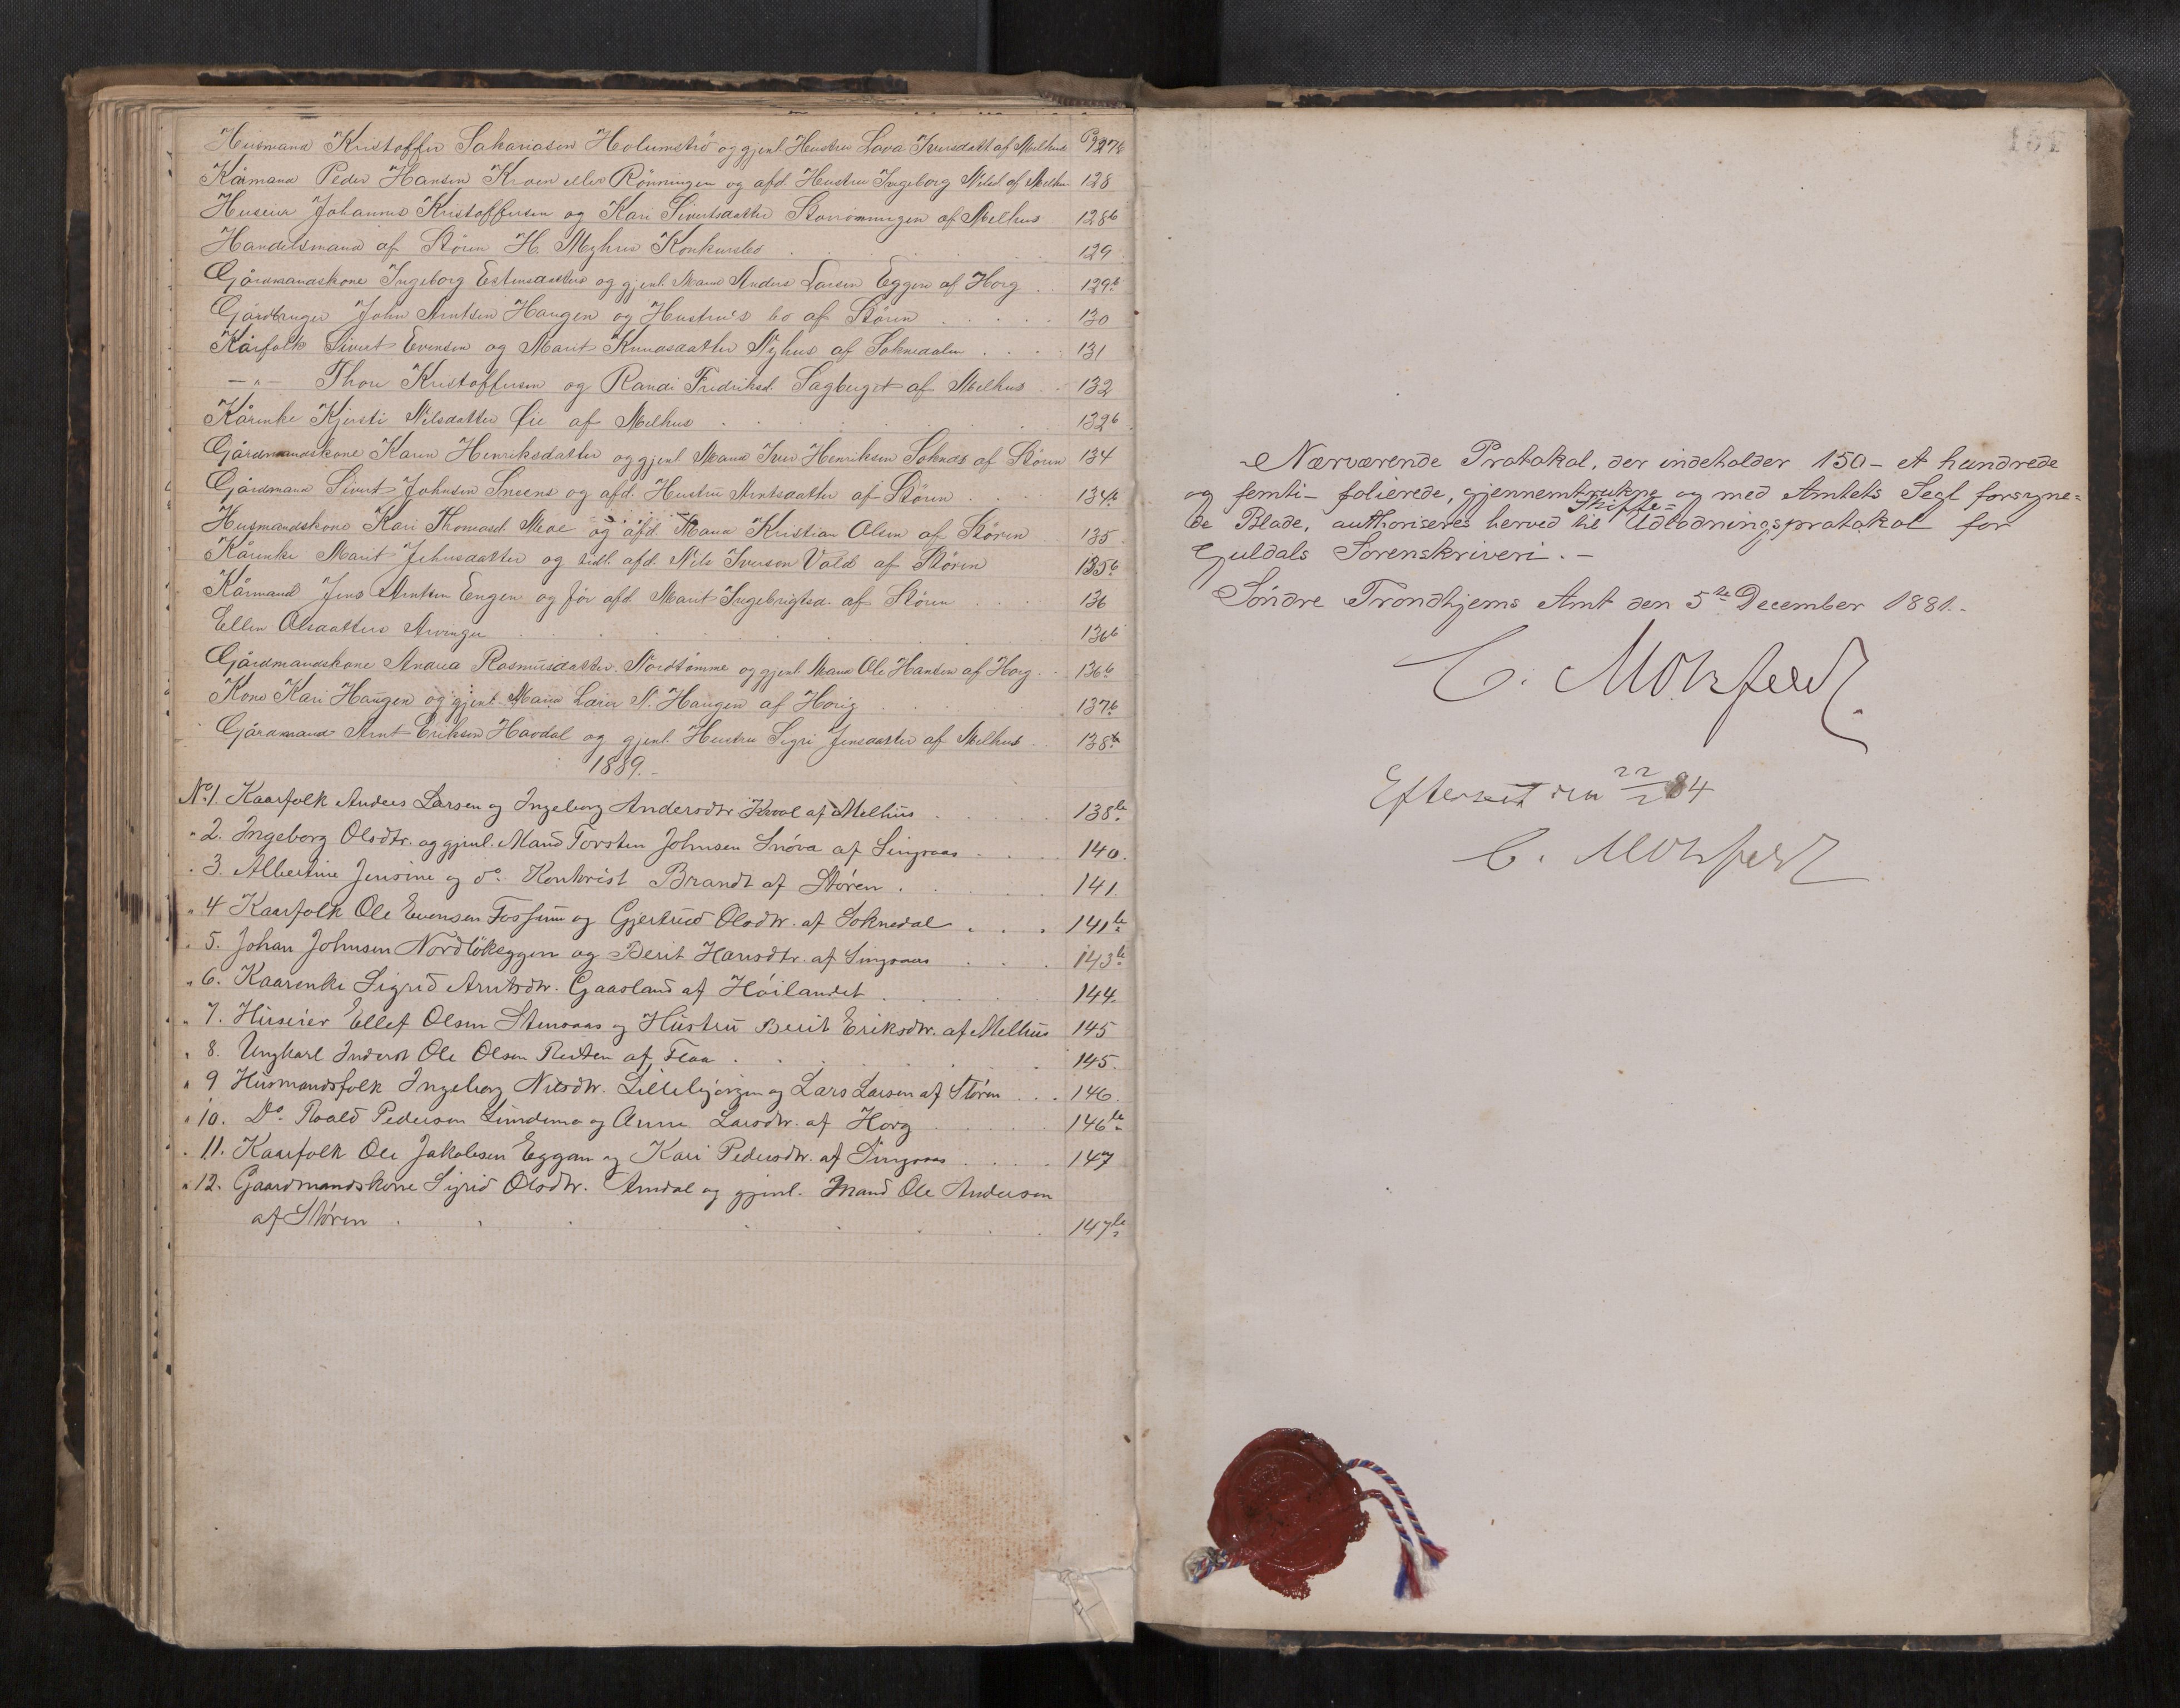 Husmand Kristoffer Sakariasen Holumstrø og gjenl. Hustru Lava Iversdatt af Melhus Pg 127b
Kårmand Peder Hansen Kroen eller Rönningen og afd. Hustru Ingeborg Nilsd. af Melhu 128
Huseier Johannes Kristoffersen og Kari Sivertsdatter Storrönningen af Melhus 128b
Handelsmand af Stören H. Myhres Konkursbo 129
Gårdmandskone Ingeborg Estensdatter og gjenl. Mand Anders Larsen Eggen af Horg 129b
Gårdbruger John Arntsen Haugen og Hustru's bo af Stören 130
Kårfolk Sivert Evensen og Marit Knudsdatter Nyhus af Soknedalen 131
-"- Thore Kristoffersen og Randi Fredriksd. Sagberget af Melhus 132
Kårenke Kjersti Nilsdatter Øie af Melhus 132b
Gårdmandskone Karen Henriksdatter og gjenl. Mand Iver Henriksen Soknes af Stören 134
Gårdmand Sivert Johnsen Sneens og afd. Hustru Arntsdatter af Stören 134b
Husmandskone Kari Thomasd. Moe og afd. Mand Kristian Olsen af Stören 135
Kårenke Marit Johnsdatter og tidl. afd. Nils Iversen Vold af Stören 135b
Kårmand Jens Arntsen Engen og før afd. Marit Ingebrigtsd. af Stören 136
Ellen Olsdatters Arvinger 136b
Gårdmandskone Andrea Rasmusdatter Nordtömme og gjenl. Mand Ole Hansen af Horg 136b
Kone Kari Haugen og gjenl. Mand Lars N. Haugen af Horg 137b
Gårdmand Arnt Eriksen Havdal og gjenl. Hustru Sigri Jensdatter af Melhus 138b
1889.-
No 1. Kaarfolk Anders Larsen og Ingeborg Andersdtr Kvol af Melhus 138b
" 2. Ingeborg Olsdtr. og gjenl. Mand Torsten Johnsen Snöva af Singsaas 140.
" 3. Albertine Jensine og do. Kontorist Brandt af Stören 141.
" 4 Kaarfolk Ole Evensen Fossum og Gjertrud Olsdtr. af Soknedal 141b
" 5. Johan Johnsen Nordlökeggen og Berit Hansdtr. af Singsaas 143b
" 6. Kaarenke Sigrid Arntsdtr. Gaasland af Höilandet 144.
" 7. Huseier Ellef Olsen Stensaas og Hustru Berit Eriksdtr. af Melhus 145
" 8. Ungkarl Inderst Ole Olsen Reiten af Flaa 145.
" 9 Husmandsfolk Ingeborg Nilsdtr. Lillebjörgen og Lars Larsen af Stören 146.
" 10. Do. Roald Pedersen Lundemo og Anne Larsdtr. af Horg 146b
" 11. Kaarfolk Ole Jakobsen Eggan og Kari Pedersdtr. af Singsaas 147
" 12. Gaardmandskone Sigrid Olsdtr. Amdal og gjenl. Mand Ole Andersen
af Stören 147b
151
Nærværende Protokol, der indeholder 150 - et hundrede
og femti - folierede, gjennemtrukne og med Amtets Segl forsyne=
de Blade, authoriseres herved til Skifte= Udlodningsprotokol for
Guldals Sorenskriveri. -
Söndre Trondhjems Amt den 5te December 1881.-
C. Motzfeldt.
Efterseet den 22/2 84
C. Motzfeldt